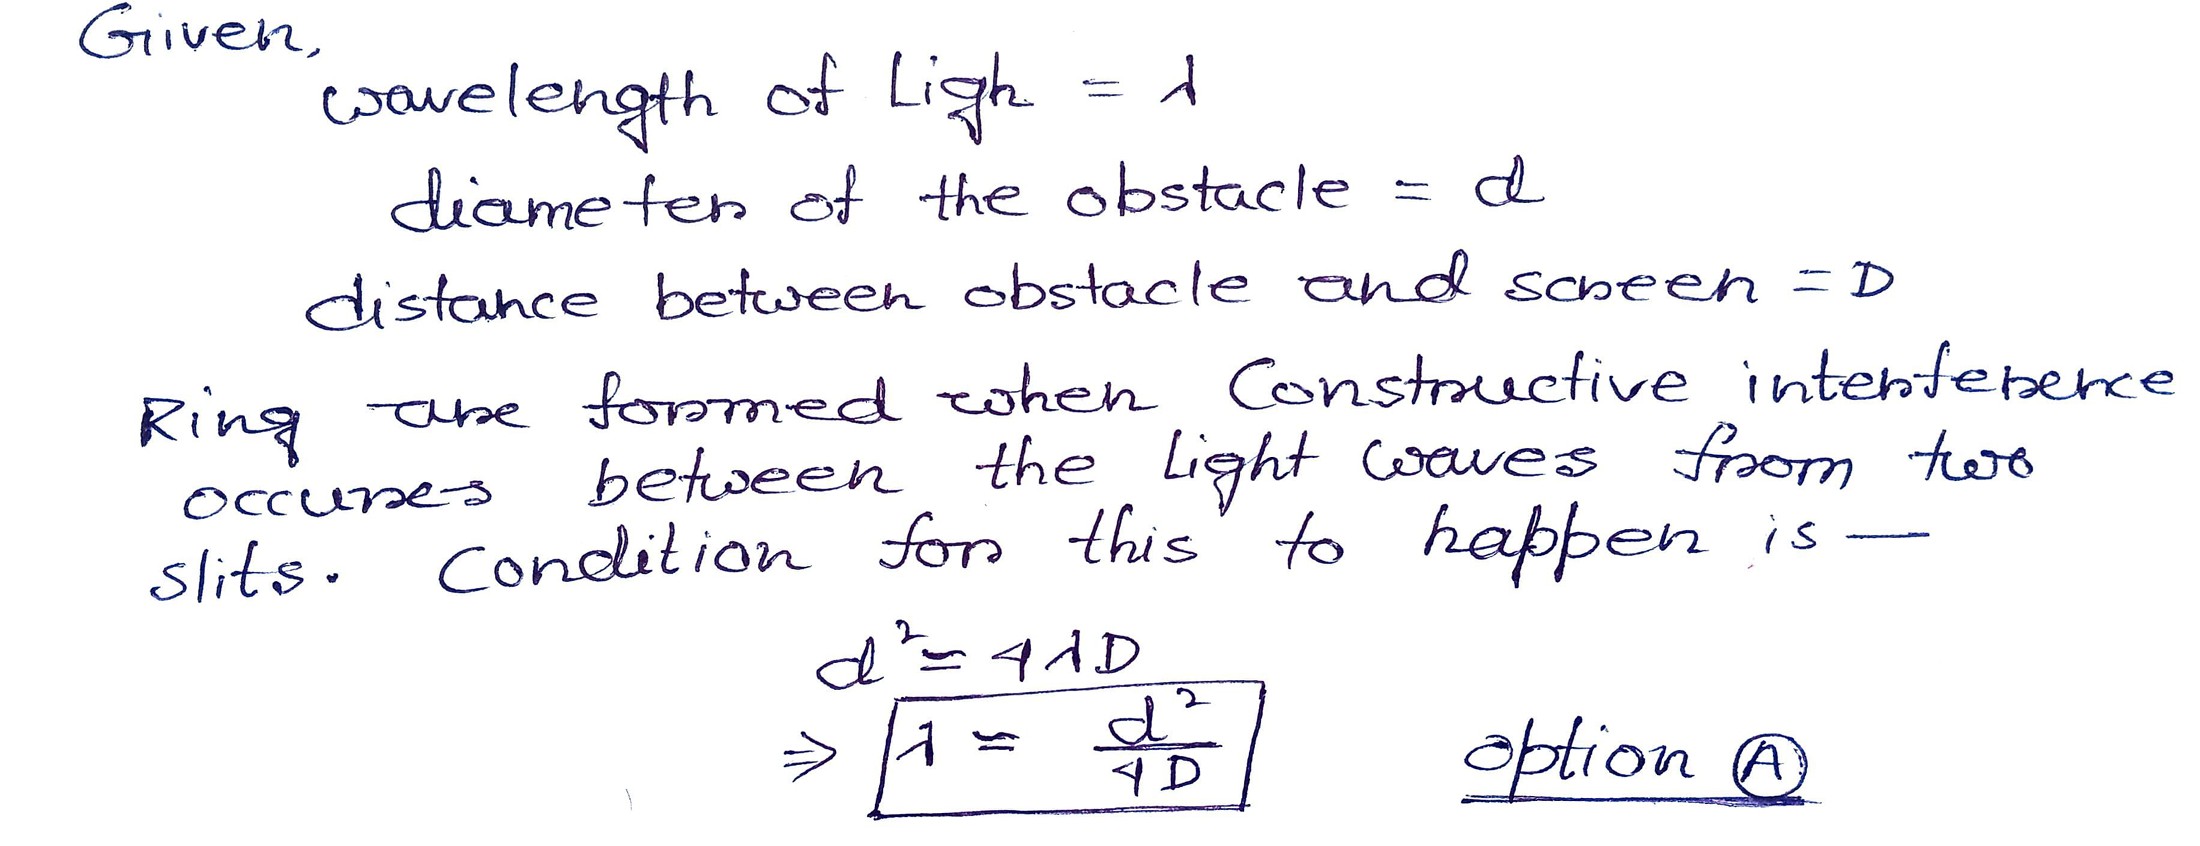 Given,
wavelength of Ligh = λ
diameter of the obstacle = d
distance between obstacle and screen = D
Ring are formed when Constructive interference
occures between the Light waves from two
slits. Condition for this to happen is —
d² = 4λD
⇒ λ = d²/4D option Ⓐ